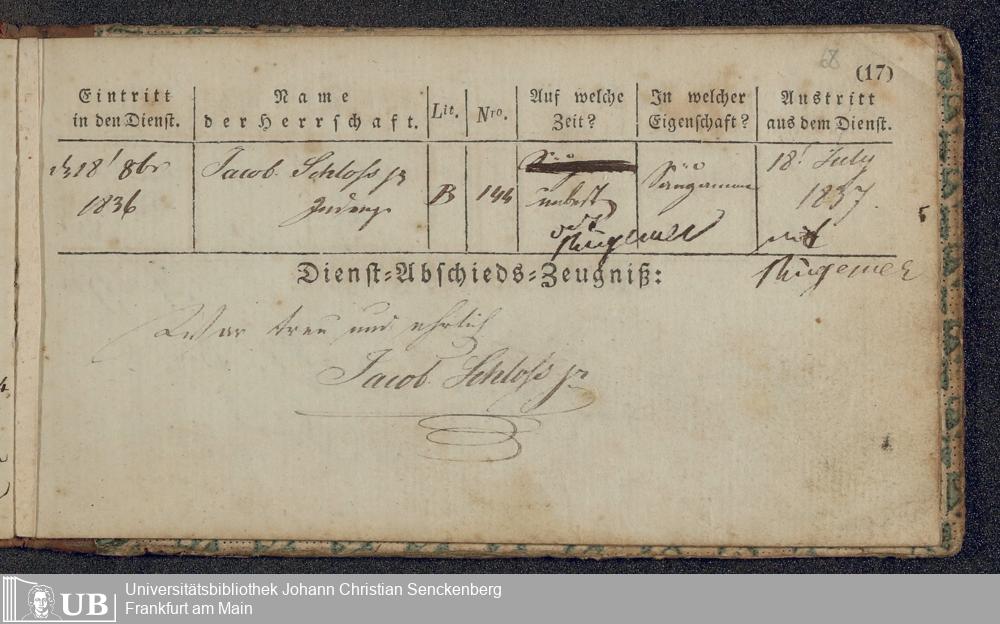 68
(17)
Eintritt
in den Dienst.
Name
der Herrschaft.
Lit.
Nro.
Auf welche
Zeit?
In welcher
Eigenschaft?
Austritt
aus dem Dienst.
18t 8br
1836
Jacob Schloss jr
B
144
unbest
Rügemer
Säugamme
18t July
1837.
Rügemer
Dienst-Abschieds-Zeugniß:
War treu und ehrlich
Jacob Schloss jr
UB
Universitätsbibliothek Johann Christian Senckenberg
Frankfurt am Main